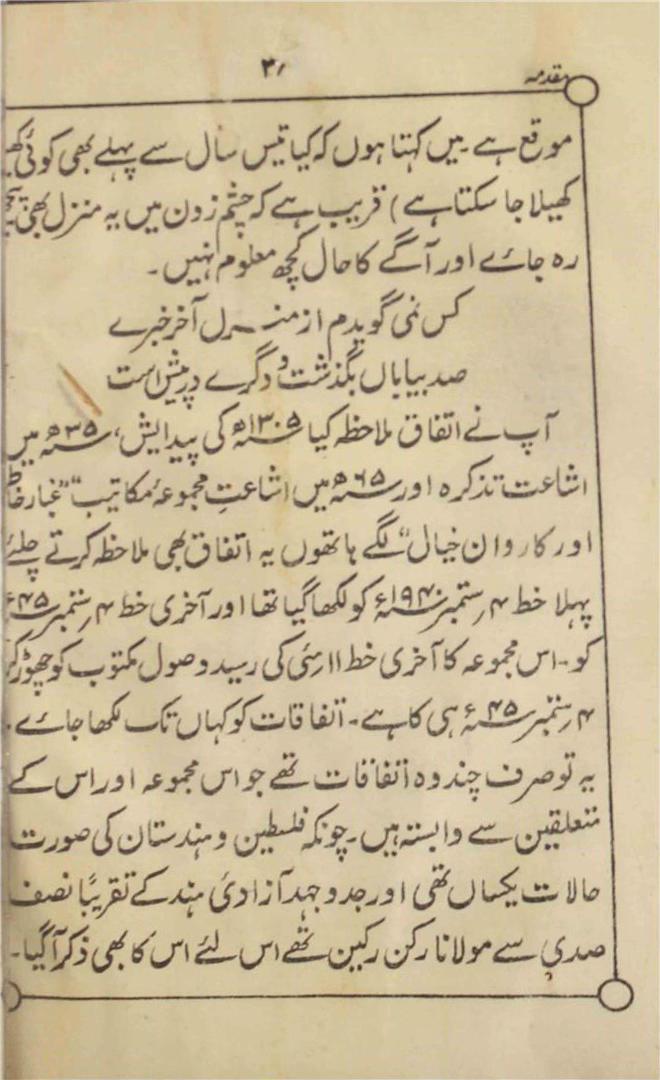 مقدمہ
۳۱
موقع ہے۔ میں کہتا ہوں کہ کیا تیس سال سے پہلے بھی کوئی
کھیلا جا سکتا ہے) قریب ہے کہ چشم زدن میں یہ منزل بھی
رہ جائے اور آگے کا حال کچھ معلوم نہیں۔
کس نمی گویدم از منزل آخر خبرے
صد بیاباں بگذشت و دگرے درپیش است
آپ نے اتفاق ملاحظہ کیا ۱۳۰۵ھ کی پیدائش، ۳۵ھ میں
اشاعت تذکرہ اور ۶۵ھ میں اشاعتِ مجموعۂ مکاتیب "غبار
اور کاروان خیال" لگے ہاتھوں یہ اتفاق بھی ملاحظہ کرتے چلئے
پہلا خط ۴ ستمبر ۱۹۴۰ء کو لکھا گیا تھا اور آخری خط ۴ ستمبر ۴۵ء
کو۔ اس مجموعہ کا آخری خط ۱۱ مئی کی رسید وصول مکتوب کو چھوڑ کر
۴ ستمبر ۴۵ء ہی کا ہے۔ اتفاقات کو کہاں تک لکھا جائے۔
یہ تو صرف چند وہ اتفاقات تھے جو اس مجموعہ اور اس کے
متعلقین سے وابستہ ہیں۔ چونکہ فلسطین و ہندستان کی صورت
حالات یکساں تھی اور جدوجہد آزادیٔ ہند کے تقریباً نصف
صدی سے مولانا رکن رکین تھے اس لئے اس کا بھی ذکر آگیا۔